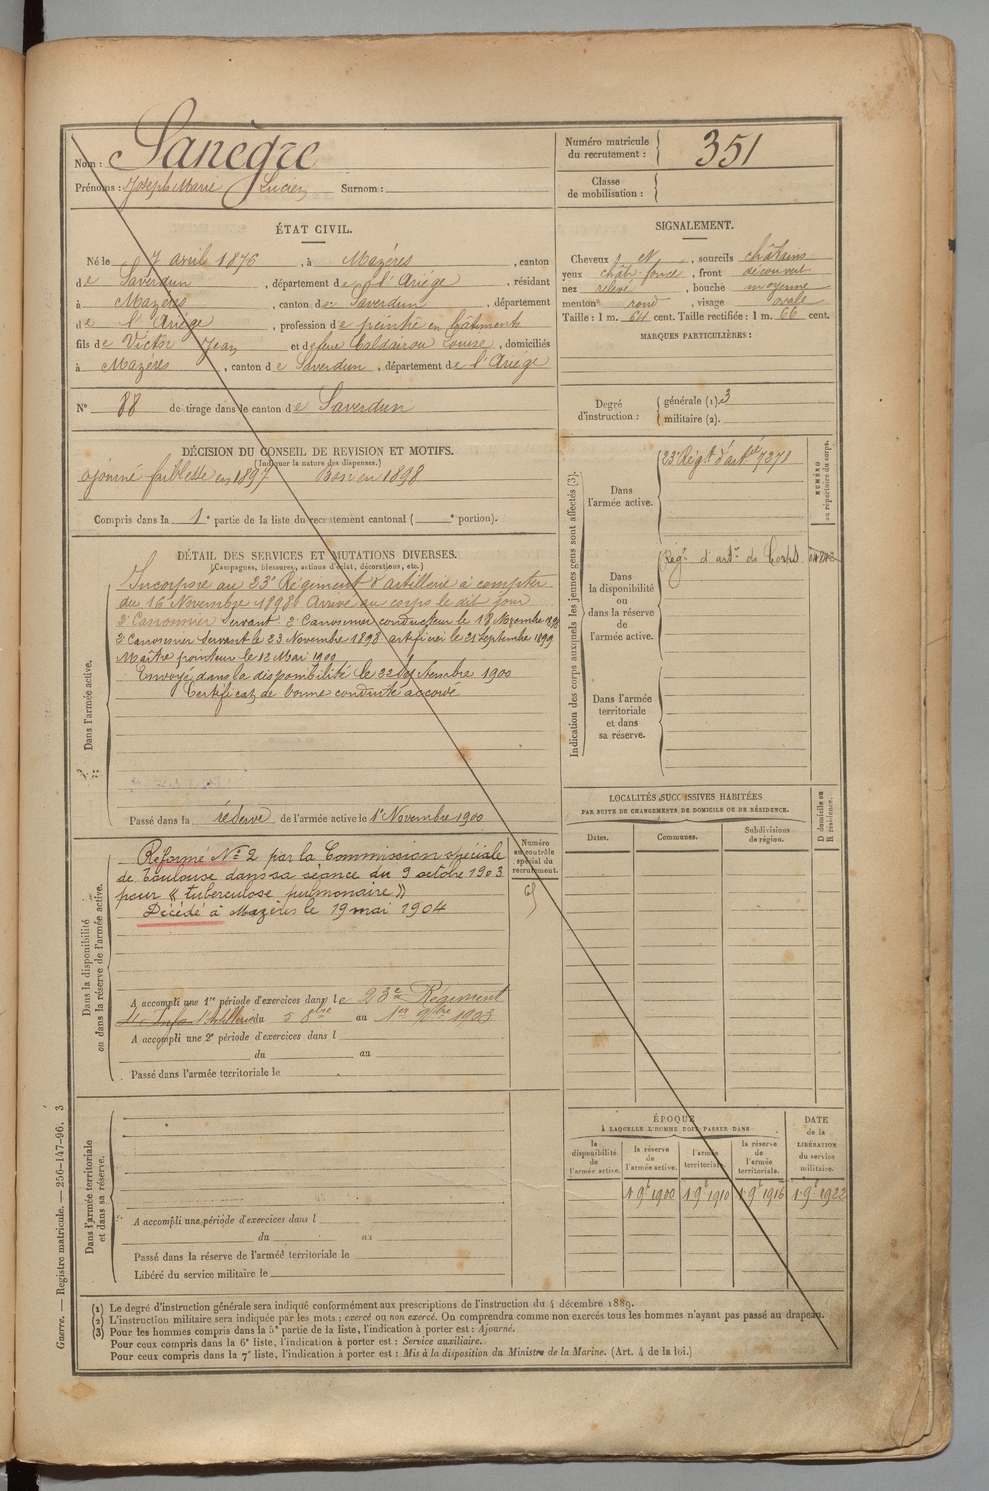 Nom : Sanègre
Prénoms : Joseph Marie Lucien Surnom :
Numéro matricule du recrutement : 351
Classe de mobilisation :
ÉTAT CIVIL.
Né le 7 avril 1876, à Mazères, canton
de Saverdun, département de l'Ariége, résidant
à Mazères, canton de Saverdun, département
de l'Ariège, profession de peintre en bâtiments
fils de Victor Jean et de feue Caldairou Louise, domiciliés
à Mazéres, canton de Saverdun, département de l'Ariége
N° 88 de tirage dans le canton de Saverdun
SIGNALEMENT.
Cheveux et, sourcils châtains
yeux chât-foncé, front découvert
nez relevé, bouche moyenne
menton rond, visage ovale
Taille : 1 m. 64 cent. Taille rectifiée : 1 m. 66 cent.
MARQUES PARTICULIÈRES :
Degré d'instruction : générale (1). 3
militaire (2).
DÉCISION DU CONSEIL DE REVISION ET MOTIFS.
(Indiquer la nature des dispenses.)
ajourné faiblesse en 1897 Bon en 1898
Compris dans la 1e partie de la liste du recrutement cantonal ( e portion).
DÉTAIL DES SERVICES ET MUTATIONS DIVERSES.
(Campagnes, blessures, actions d'éclat, décorations, etc.)
Dans l'armée active.
Incorporé au 23e Régiment d'artillerie à compter
du 16 Novembre 1898. Arrivé au corps le dit jour
2e Canonnier Servant 2e Canonnier conducteur le 18 Novembre 1898
2e Canonnier servant le 23 Novembre 1898 artificier le 21 Septembre 1899
Maître pointeur le 12 Mai 1900
Envoyé dans la disponibilité le 22 Septembre 1900
Certificat de bonne conduite accordé
Passé dans la réserve de l'armée active le 1er Novembre 1900
Indication des corps auxquels les jeunes gens sont affectés (3).
NUMÉRO au répertoire du corps.
Dans l'armée active. 23e Régt d'artie 7271
Dans la disponibilité ou dans la réserve de l'armée active. Régt d'artie de Corps
Dans l'armée territoriale et dans sa réserve.
LOCALITÉS SUCCESSIVES HABITÉES
PAR SUITE DE CHANGEMENTS DE DOMICILE OU DE RÉSIDENCE.
Dates. Communes. Subdivisions de région. D domicile ou R résidence.
Dans la disponibilité ou dans la réserve de l'armée active.
Numéro au contrôle spécial du recrutement.
Réformé N° 2 par la Commission spéciale
de Toulouse dans sa séance du 9 octobre 1903
pour « tuberculose pulmonaire »
Décédé à Mazères le 19 mai 1904
A accompli une 1re période d'exercices dans le 23e Régiment
d'Artillerie du 5 8bre au 1er 9bre 1903
A accompli une 2e période d'exercices dans l
du au
Passé dans l'armée territoriale le
Dans l'armée territoriale et dans sa réserve.
A accompli une période d'exercices dans l
du au
Passé dans la réserve de l'armée territoriale le
Libéré du service militaire le
ÉPOQUE
À LAQUELLE L'HOMME DOIT PASSER DANS
la disponibilité de l'armée active. la réserve de l'armée active. l'armée territoriale. la réserve de l'armée territoriale.
DATE de la LIBÉRATION du service militaire.
1 9bre 1900 1 9bre 1910 1 9bre 1916 1 9bre 1922
(1) Le degré d'instruction générale sera indiqué conformément aux prescriptions de l'instruction du 4 décembre 1889.
(2) L'instruction militaire sera indiquée par les mots : exercé ou non exercé. On comprendra comme non exercés tous les hommes n'ayant pas passé au drapeau.
(3) Pour les hommes compris dans la 5e partie de la liste, l'indication à porter est : Ajourné.
Pour ceux compris dans la 6e liste, l'indication à porter est : Service auxiliaire.
Pour ceux compris dans la 7e liste, l'indication à porter est : Mis à la disposition du Ministre de la Marine. (Art. 4 de la loi.)
Guerre. — Registre matricule. — 256-147-96. 3